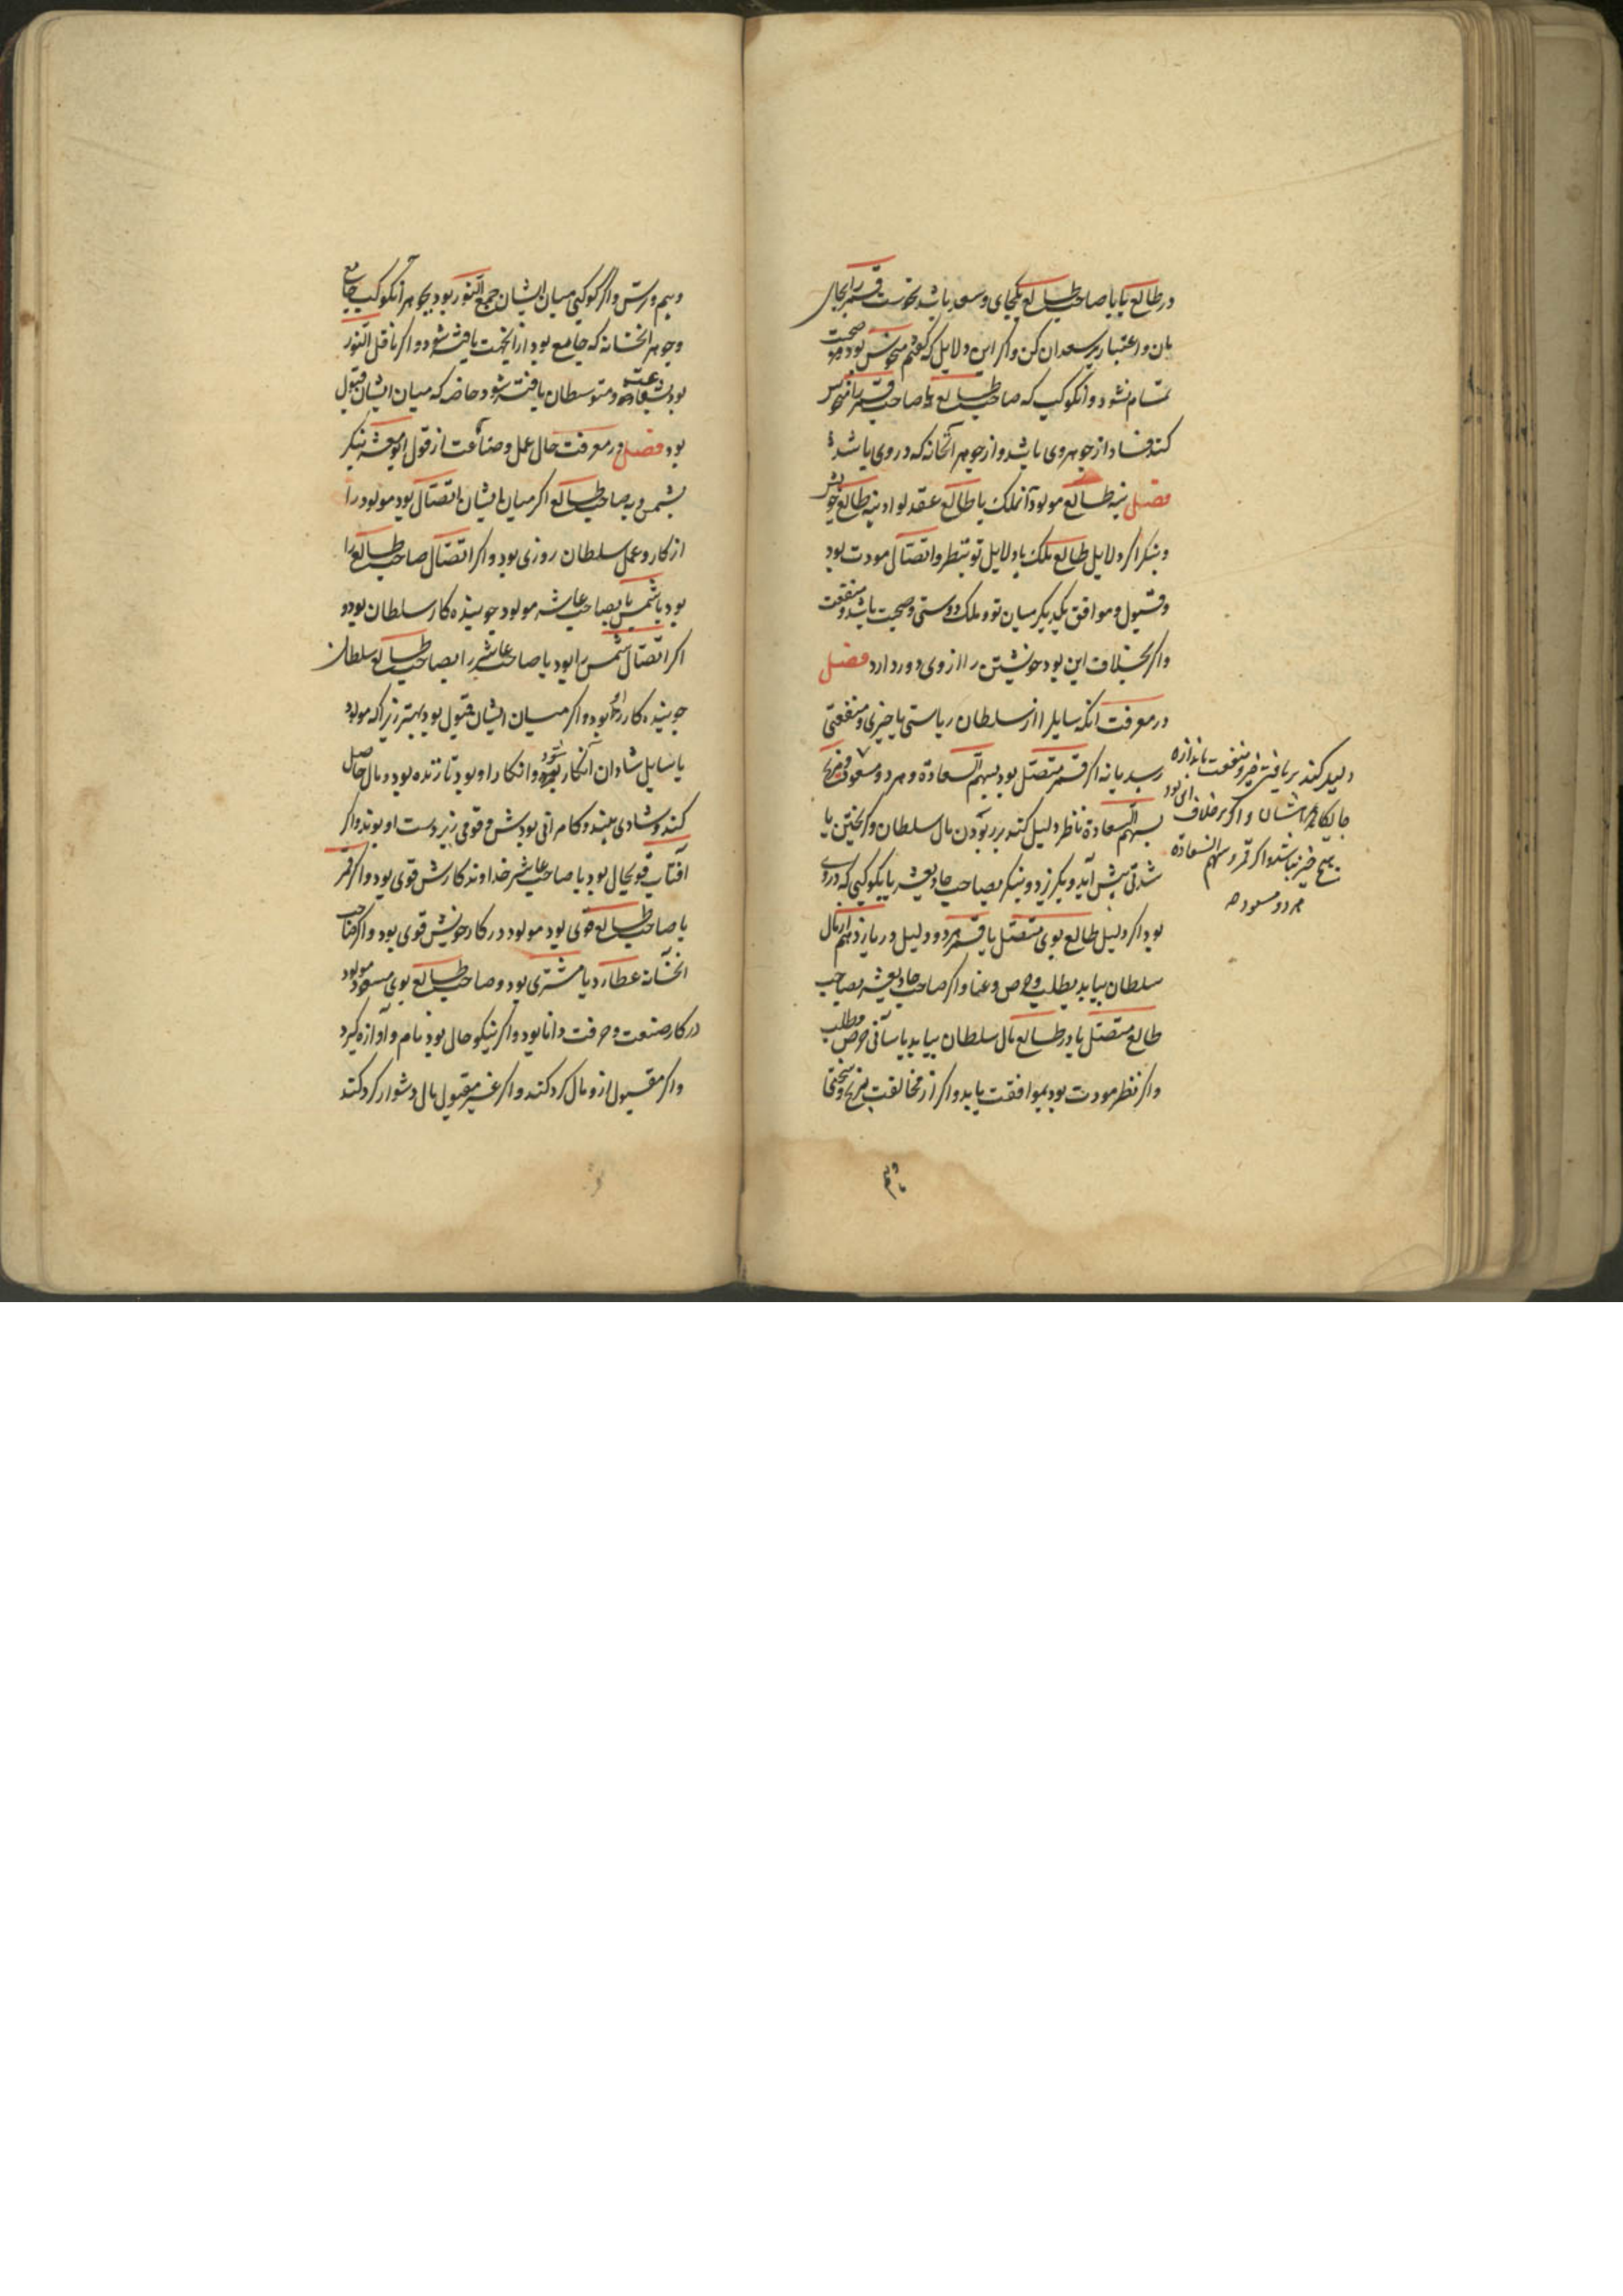 در طالع یا با صاحب طالع بیکجای و سعد باشد نحوست قمر را بحال
بان و اعتبار بر سعدان کن و اگر این دلایل که گفتم منحوس بود صحبت
تمام نشود و آنکوکب که صاحب طالع یا صاحب قمر را نحوس
کند فساد از جوهر وی باشد و از جوهر آنخانه که در وی باشد
فصل طالع مولود آن ملک یا طالع عقد لواء بنه طالع خویش
و بنگر اگر دلایل طالع ملک با دلایل تو بنظر و اتصال مودت بود
و قبول و موافق یکدیگر میان تو و ملک دوستی و صحبت باشد و منفعت
و اگر بخلاف این بود خویشتن را از وی دور دارد فصل
در معرفت آنکه سایل را از سلطان ریاستی یا چیزی و منفعتی
رسد یا نه اگر قمر متصل بود بسهم السعادة و هر دو مسعود
بسهم السعادة ناظر دلیل کند بر بودن مال سلطان و گریختن یا
شدتی پیش آید و بگریزد و بنگر بصاحب حادیعشر یا بکوکبی که در وی
بود اگر دلیل طالع بوی متصل یا قمر بود و دلیل در یازدهم از مال
سلطان بیابد بطلب و حرص و عنا و اگر صاحب حادیعشر بصاحب
طالع متصل یا در طالع مال سلطان بیابد بآسانی
و اگر نظر مودت بود بموافقت یابد و اگر از مخالفت برنج و سختی
دلیل کند بر یافتن خیر و منفعت باندازه
جایگاه ایشان و اگر بر خلاف این بود
هیچ خیر نباشد و اگر قمر و سهم السعادة
هر دو مسعود
و سیم ورش و اگر کوکبی میان ایشان جمع النور بود بجوهر آنکوکب جامع
و جوهر آنخانه که جامع بود از آنجهت یافته شود و اگر ناقل النور
بود و متوسطان یافته شود خاصه که میان ایشان قبول
بود فصل در معرفت حال عمل و صناعت از قول ابومعشر بنگر
بشمس و بصاحب طالع اگر میان ایشان اتصال بود مولود را
از کار و عمل سلطان روزی بود و اگر اتصال صاحب طالع را
بود با شمس یا بصاحب عاشر مولود جوینده کار سلطان بود و
اگر اتصال شمس را بود یا صاحب عاشر را بصاحب طالع سلطان
جوینده کار او بود و اگر میان ایشان قبول بود بهتر زیراکه مولود
یا سایل شادان آنکار شود و آنکار او بود تا زنده بود و مال حاصل
کند و شادی بیند و کامرانی بودش و قومی زیر دست او بوند و اگر
آفتاب قویحال بود یا صاحب عاشر خداوند کارش قوی بود و اگر قمر
یا صاحب طالع قوی بود مولود در کار خویش قوی بود و اگر صاحب
آنخانه عطارد یا مشتری بود و صاحب طالع بوی مسعود مولود
در کار صنعت و حرفت دانا بود و اگر نیکو حال بود نام و آوازه گیرد
و اگر مقبول از و مال گرد کند و اگر غیر مقبول مال دشوار گرد کند